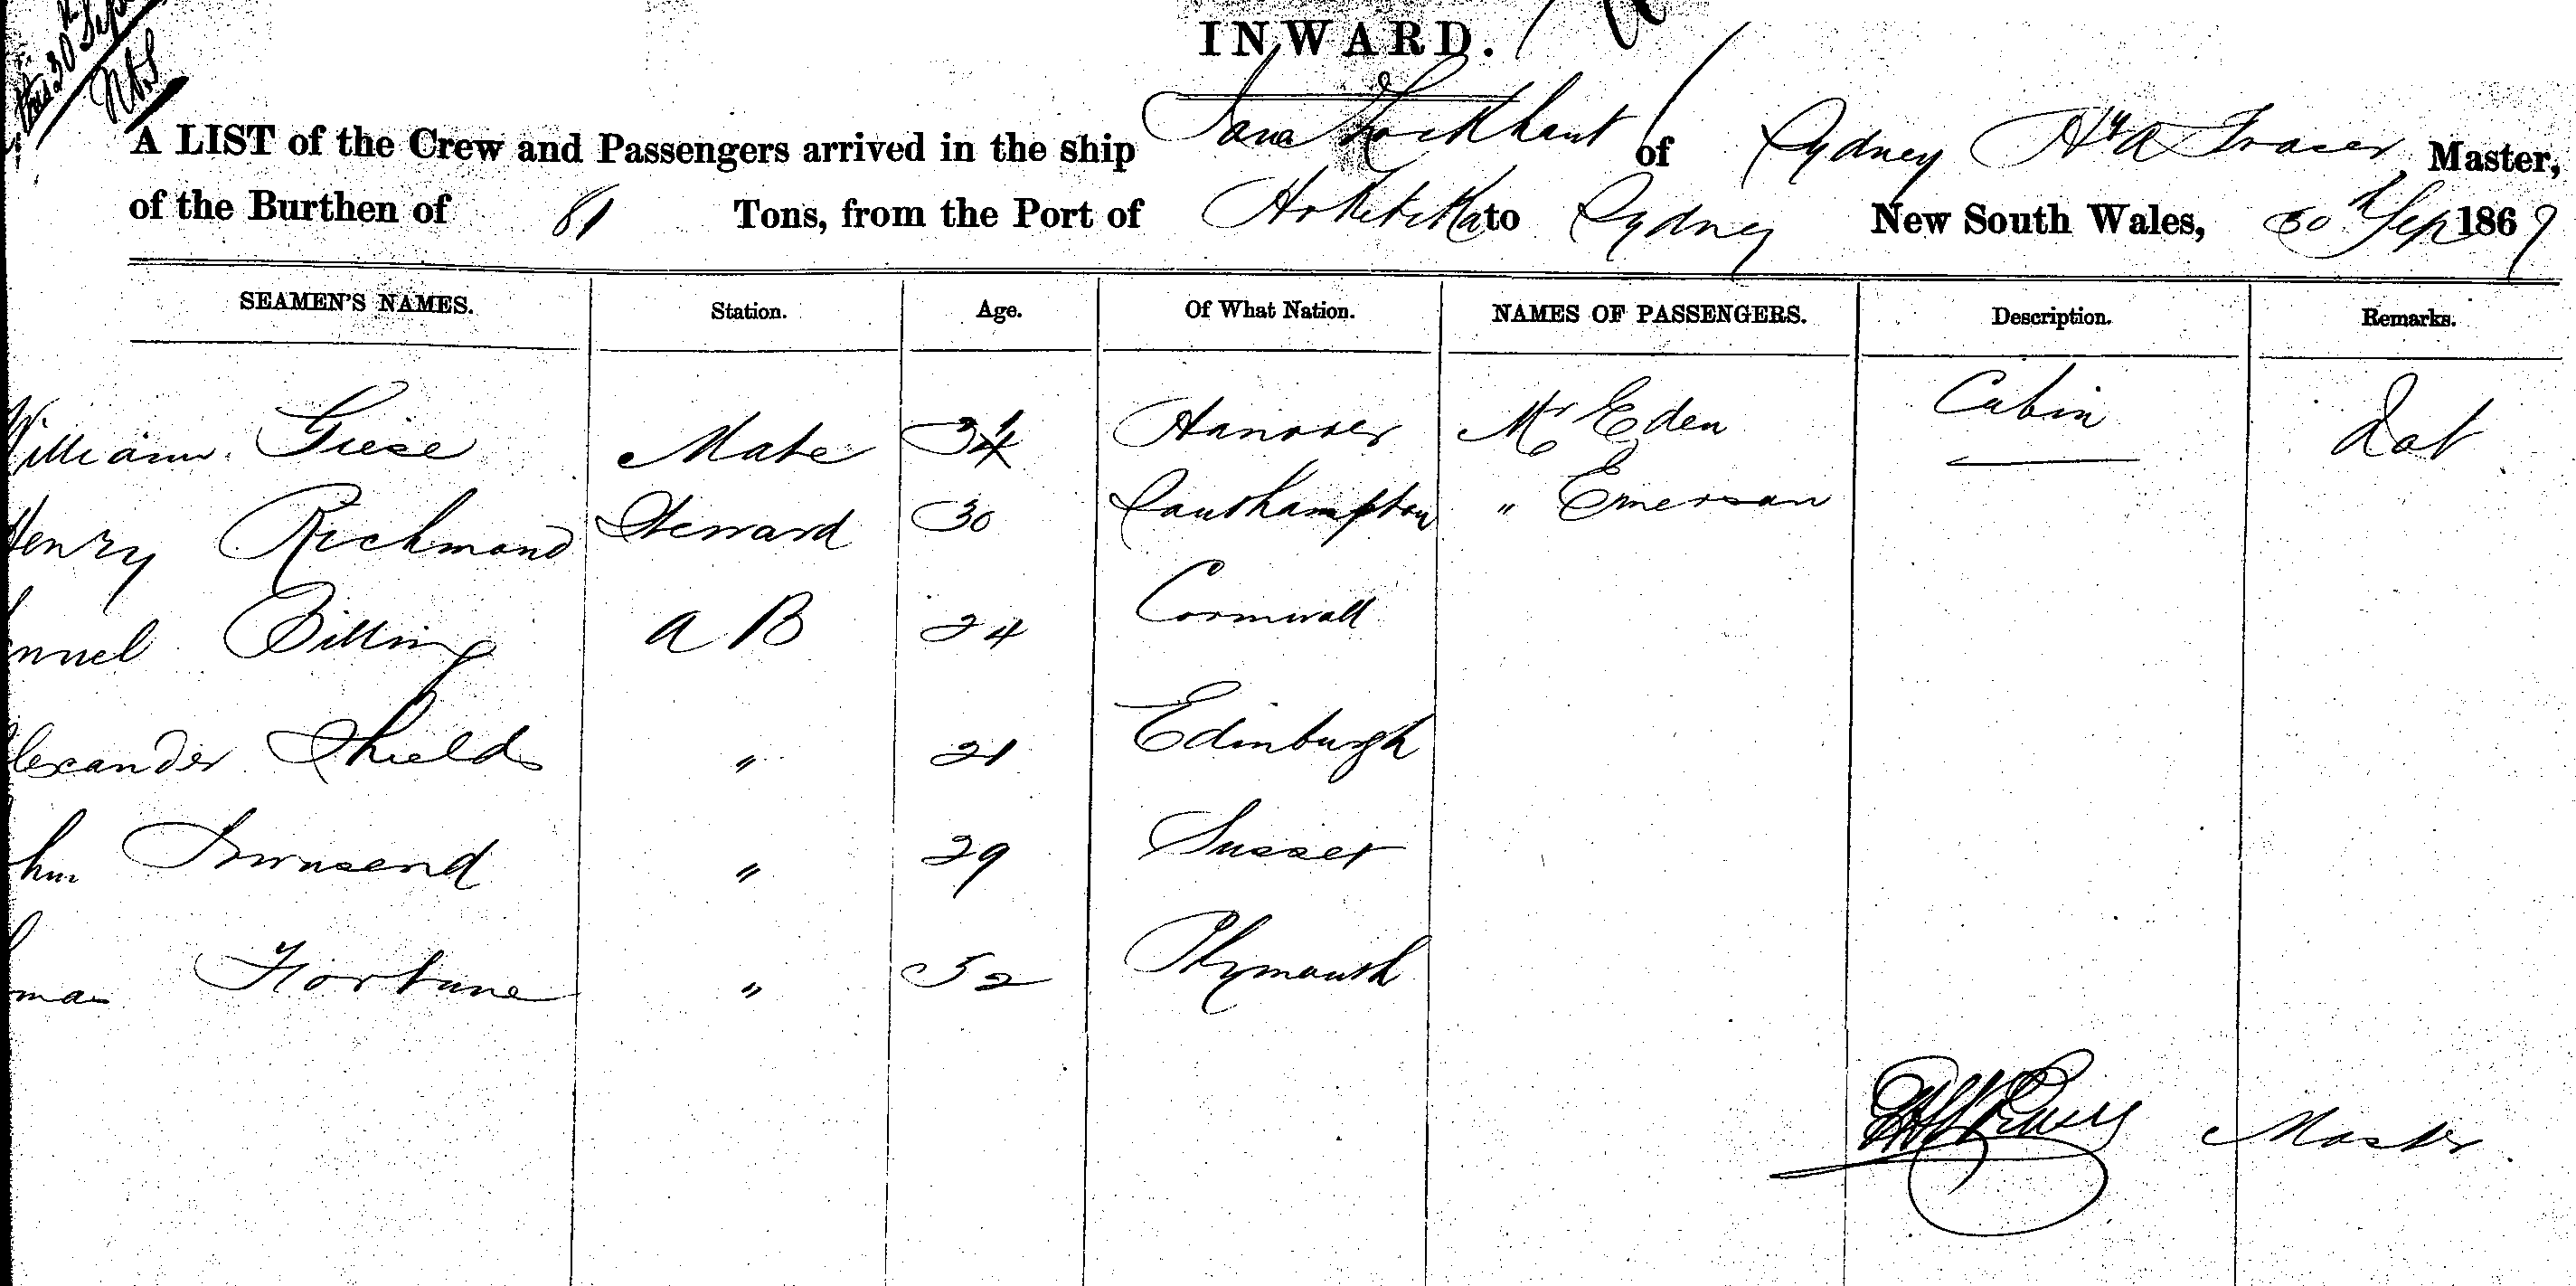 this 30th Sep
INWARD.
A LIST of the Crew and Passengers arrived in the ship Jane Lockhart of Sydney Hy A Fraser Master,
of the Burthen of 81 Tons, from the Port of Hokitika to Sydney New South Wales, 30th Sep 1867
SEAMEN'S NAMES. Station. Age. Of What Nation. NAMES OF PASSENGERS. Description. Remarks.
William Giese Mate 34 Hanover Mr Eden Cabin
Henry Richmond Steward 30 Southampton " Emerson
muel Billing A B 24 Cornwall
lexander Shields " 21 Edinburgh
hn Townsend " 29 Sussex
mas Fortune " 52 Plymouth
Master